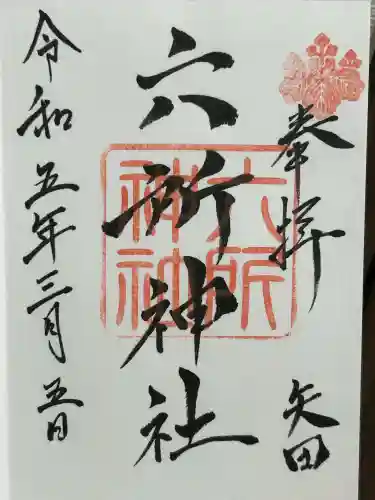 奉拝
矢田
六所神社
六所神社
令和五年三月五日